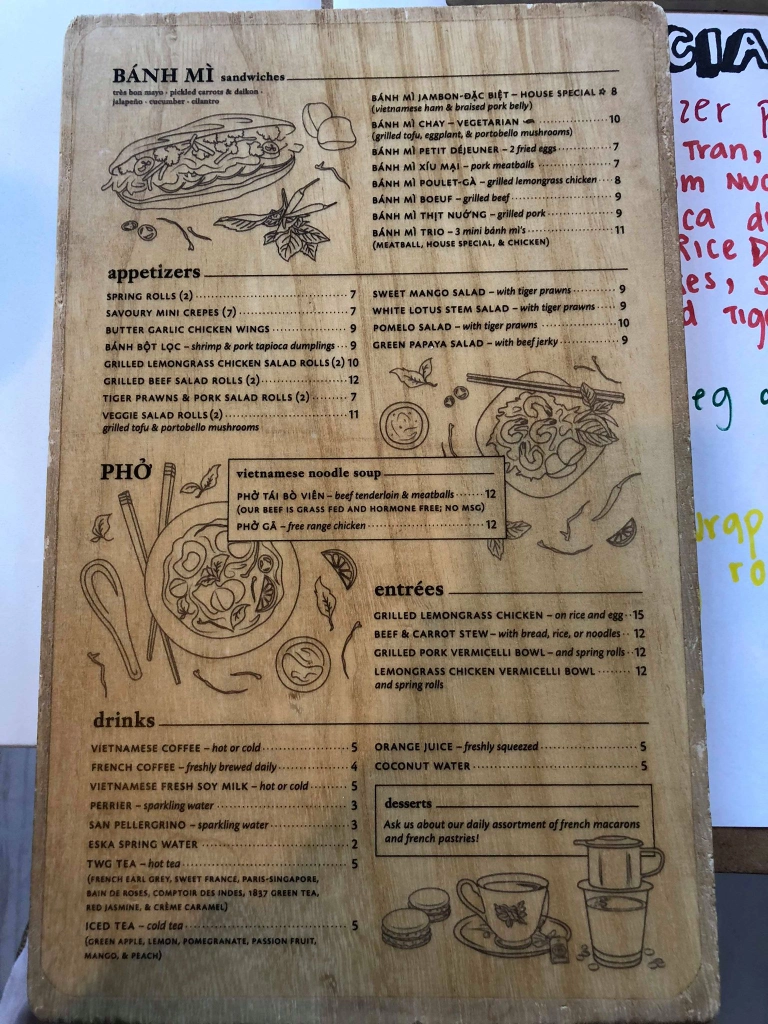 BÁNH MÌ sandwiches
très bon mayo · pickled carrots & daikon ·
jalapeño · cucumber · cilantro
BÁNH MÌ JAMBON-ĐẶC BIỆT – HOUSE SPECIAL ☆ 8
(vietnamese ham & braised pork belly)
BÁNH MÌ CHAY – VEGETARIAN 10
(grilled tofu, eggplant, & portobello mushrooms)
BÁNH MÌ PETIT DÉJEUNER – 2 fried eggs 7
BÁNH MÌ XÍU MẠI – pork meatballs 7
BÁNH MÌ POULET-GÀ – grilled lemongrass chicken 8
BÁNH MÌ BOEUF – grilled beef 9
BÁNH MÌ THỊT NƯỚNG – grilled pork 9
BÁNH MÌ TRIO – 3 mini bánh mì's 11
(MEATBALL, HOUSE SPECIAL, & CHICKEN)
appetizers
SPRING ROLLS (2) 7
SAVOURY MINI CREPES (7) 7
BUTTER GARLIC CHICKEN WINGS 9
BÁNH BỘT LỌC – shrimp & pork tapioca dumplings 9
GRILLED LEMONGRASS CHICKEN SALAD ROLLS (2) 10
GRILLED BEEF SALAD ROLLS (2) 12
TIGER PRAWNS & PORK SALAD ROLLS (2) 7
VEGGIE SALAD ROLLS (2) 11
grilled tofu & portobello mushrooms
SWEET MANGO SALAD – with tiger prawns 9
WHITE LOTUS STEM SALAD – with tiger prawns 9
POMELO SALAD – with tiger prawns 10
GREEN PAPAYA SALAD – with beef jerky 9
PHỞ
vietnamese noodle soup
PHỞ TÁI BÒ VIÊN – beef tenderloin & meatballs 12
(OUR BEEF IS GRASS FED AND HORMONE FREE; NO MSG)
PHỞ GÀ – free range chicken 12
entrées
GRILLED LEMONGRASS CHICKEN – on rice and egg 15
BEEF & CARROT STEW – with bread, rice, or noodles 12
GRILLED PORK VERMICELLI BOWL – and spring rolls 12
LEMONGRASS CHICKEN VERMICELLI BOWL 12
and spring rolls
drinks
VIETNAMESE COFFEE – hot or cold 5
FRENCH COFFEE – freshly brewed daily 4
VIETNAMESE FRESH SOY MILK – hot or cold 5
PERRIER – sparkling water 3
SAN PELLEGRINO – sparkling water 3
ESKA SPRING WATER 2
TWG TEA – hot tea 5
(FRENCH EARL GREY, SWEET FRANCE, PARIS-SINGAPORE,
BAIN DE ROSES, COMPTOIR DES INDES, 1837 GREEN TEA,
RED JASMINE, & CRÈME CARAMEL)
ICED TEA – cold tea 5
(GREEN APPLE, LEMON, POMEGRANATE, PASSION FRUIT,
MANGO, & PEACH)
ORANGE JUICE – freshly squeezed 5
COCONUT WATER 5
desserts
Ask us about our daily assortment of french macarons
and french pastries!
CIA
zer p
Tran,
m Nuo
ca d
Rice D
es, s
d Tige
eg
wrap
ro